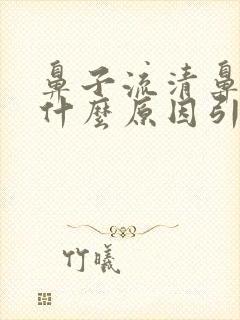 鼻子流清鼻
什麼原因引
竹曦